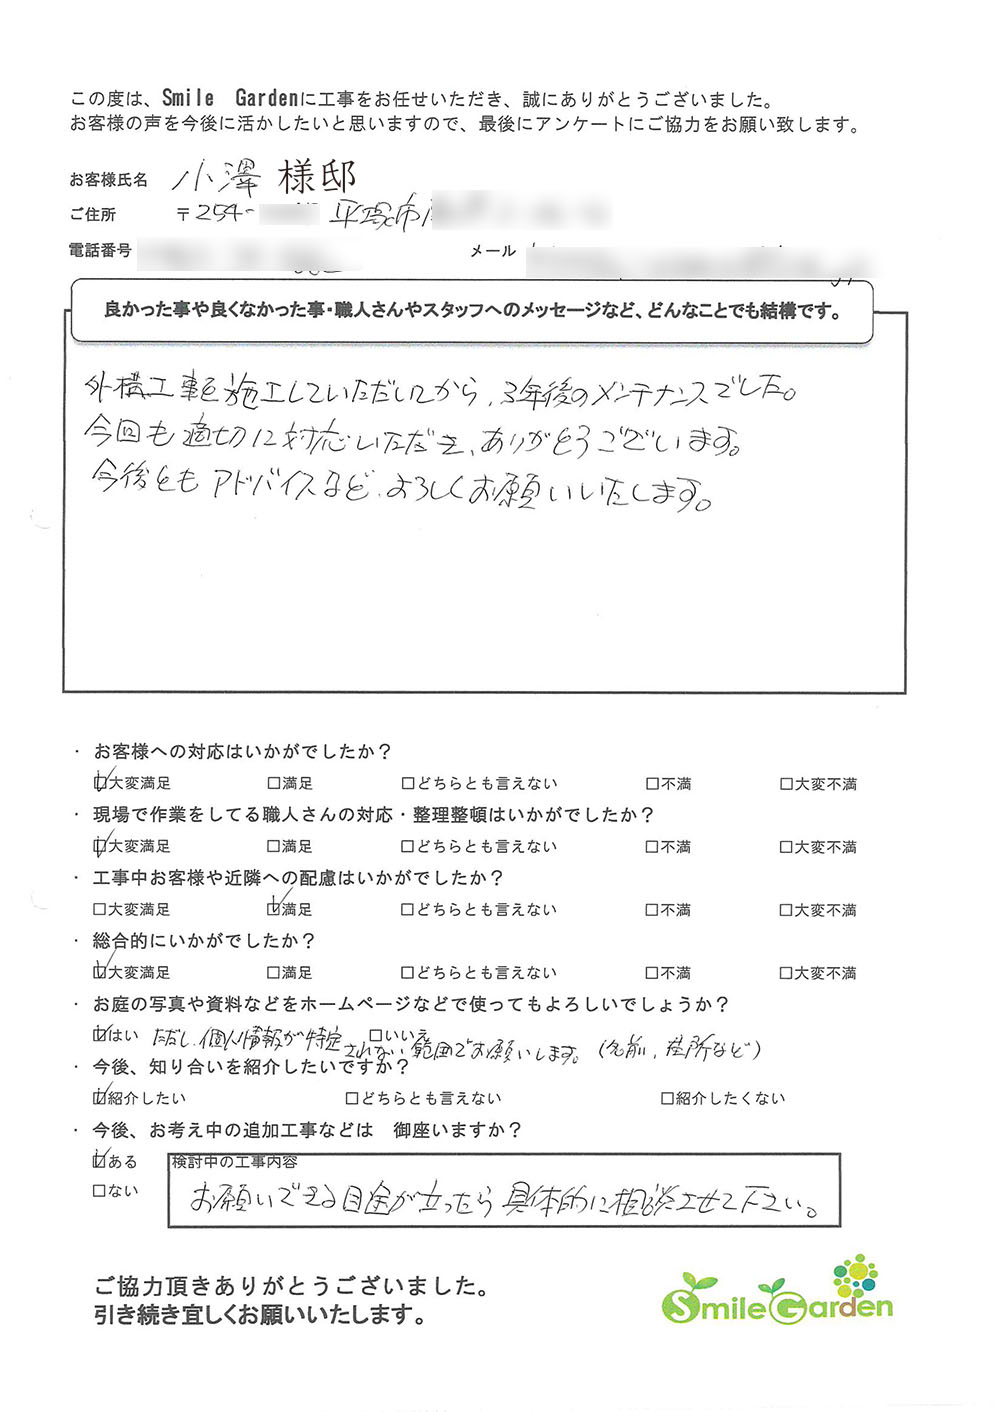 この度は、Smile Gardenに工事をお任せいただき、誠にありがとうございました。
お客様の声を今後に活かしたいと思いますので、最後にアンケートにご協力をお願い致します。
お客様氏名 小澤 様邸
ご住所 〒254- 平塚市
電話番号 メール
良かった事や良くなかった事・職人さんやスタッフへのメッセージなど、どんなことでも結構です。
外構工事を施工していただいてから、3年後のメンテナンスでした。
今回も適切に対応いただき、ありがとうございます。
今後ともアドバイスなど、よろしくお願いいたします。
・ お客様への対応はいかがでしたか？
☑大変満足 □満足 □どちらとも言えない □不満 □大変不満
・ 現場で作業をしてる職人さんの対応・整理整頓はいかがでしたか？
☑大変満足 □満足 □どちらとも言えない □不満 □大変不満
・ 工事中お客様や近隣への配慮はいかがでしたか？
□大変満足 ☑満足 □どちらとも言えない □不満 □大変不満
・ 総合的にいかがでしたか？
☑大変満足 □満足 □どちらとも言えない □不満 □大変不満
・ お庭の写真や資料などをホームページなどで使ってもよろしいでしょうか？
☑はい □いいえ
ただし、個人情報が特定されない範囲でお願いします。(名前、住所など)
・ 今後、知り合いを紹介したいですか？
☑紹介したい □どちらとも言えない □紹介したくない
・ 今後、お考え中の追加工事などは 御座いますか？
☑ある 検討中の工事内容
□ない お願いできる目途が立ったら具体的に相談させて下さい。
ご協力頂きありがとうございました。
引き続き宜しくお願いいたします。
Smile Garden